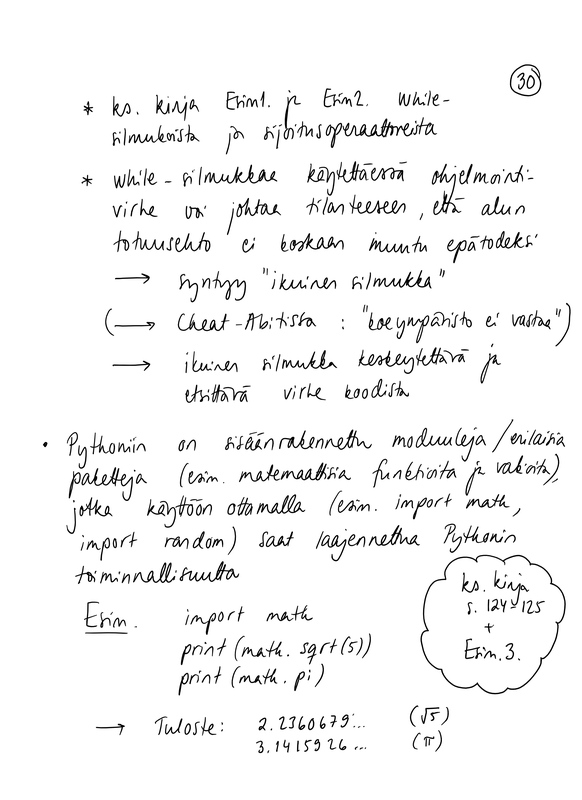 30
* ks. kirja Esim1. ja Esim2. While-
silmukoista ja sijoitusoperaattoreista
* while-silmukkaa käytettäessä ohjelmointi-
virhe voi johtaa tilanteeseen, että alun
totuusehto ei koskaan muutu epätodeksi
→ syntyy "ikuinen silmukka"
(→ Cheat-Abitissa : "koeympäristö ei vastaa")
→ ikuinen silmukka keskeytettävä ja
etsittävä virhe koodista
• Pythoniin on sisäänrakennettu moduuleja/erilaisia
paketteja (esim. matemaattisia funktioita ja vakioita),
jotka käyttöön ottamalla (esim. import math,
import random) saat laajennettua Pythonin
toiminnallisuutta
ks. kirja
s. 124-125
+
Esim. 3.
Esim. import math
print (math. sqrt(5))
print (math. pi)
→ Tuloste: 2.2360679... (√5)
3.1415926... (π)